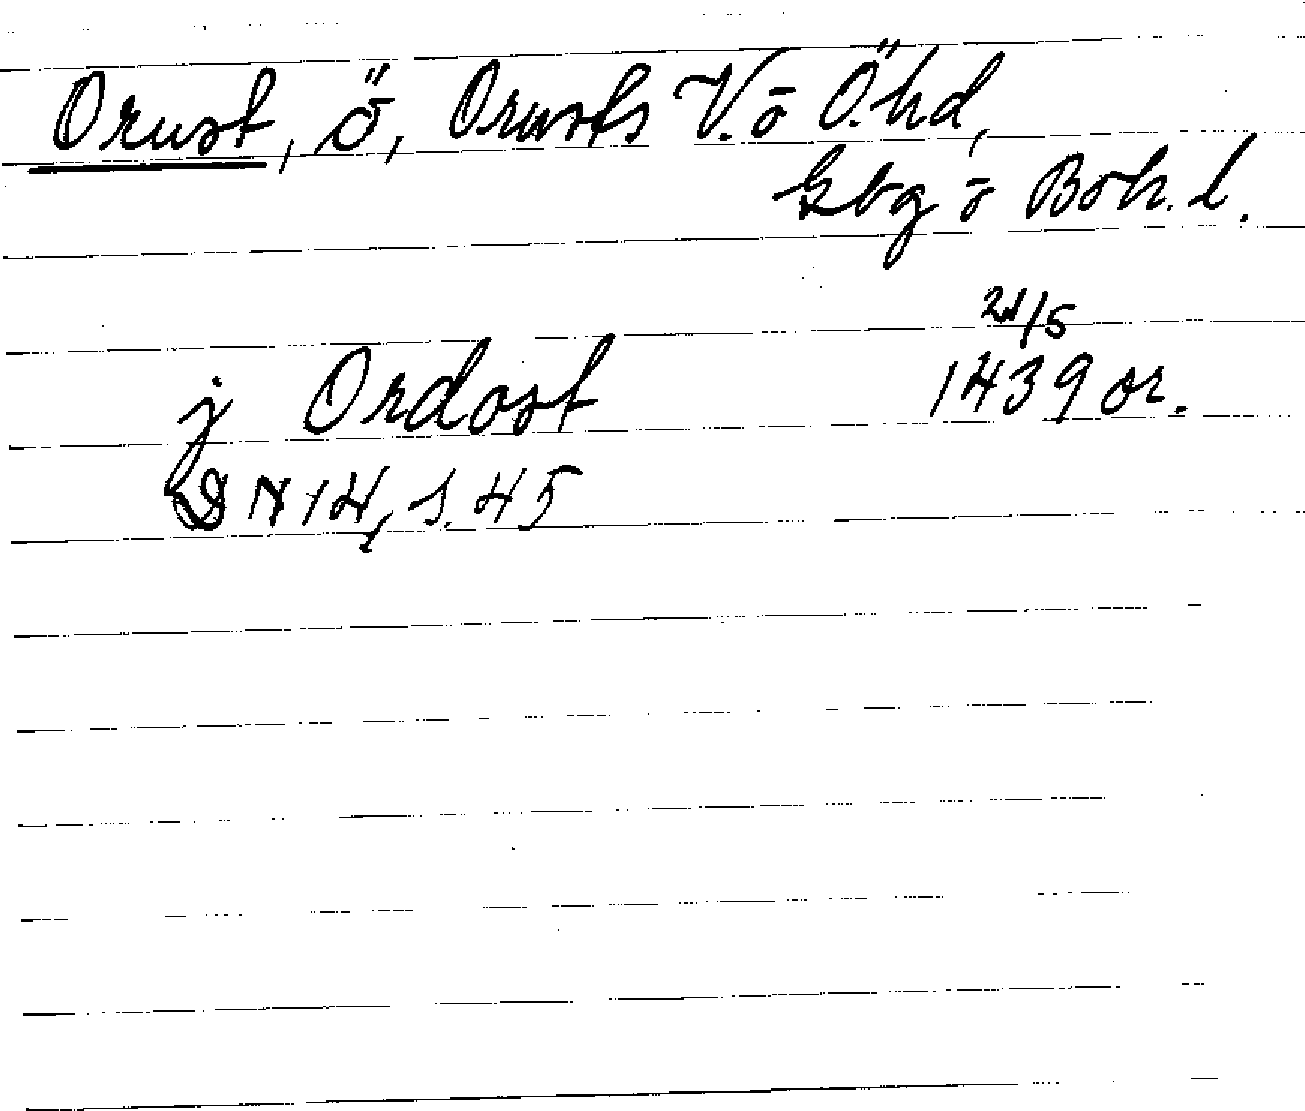 Orust, ö, Orusts V. o Ö. hd,
Gbg o Boh. l.
21/5
j Ordost 1439 or.
DN 14, s. 45